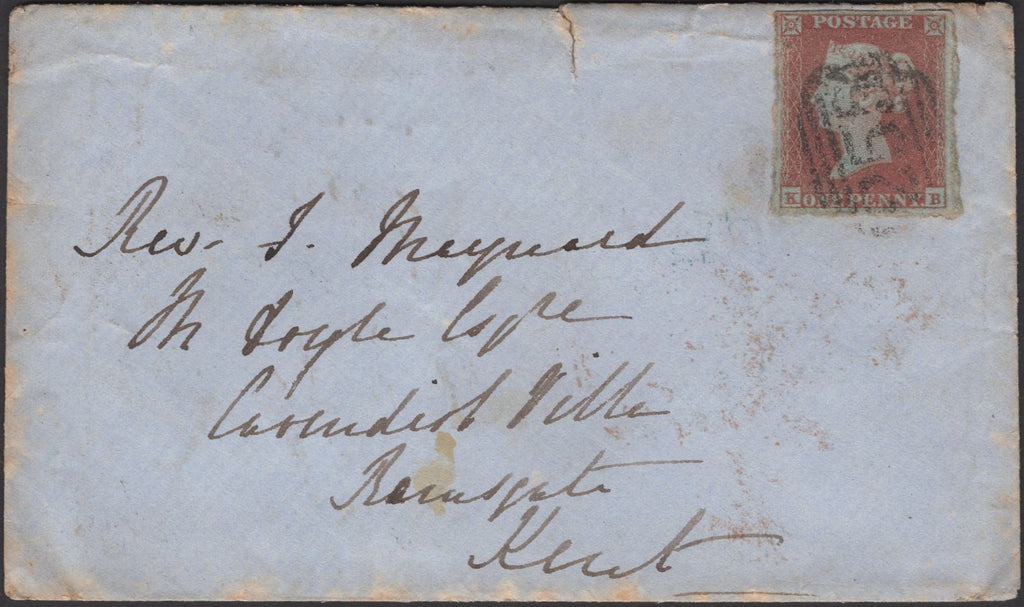 POSTAGE
ONE PENNY
K B
Rev. J. Maynard
Esqre
Cavendish Villa
Ramsgate
Kent